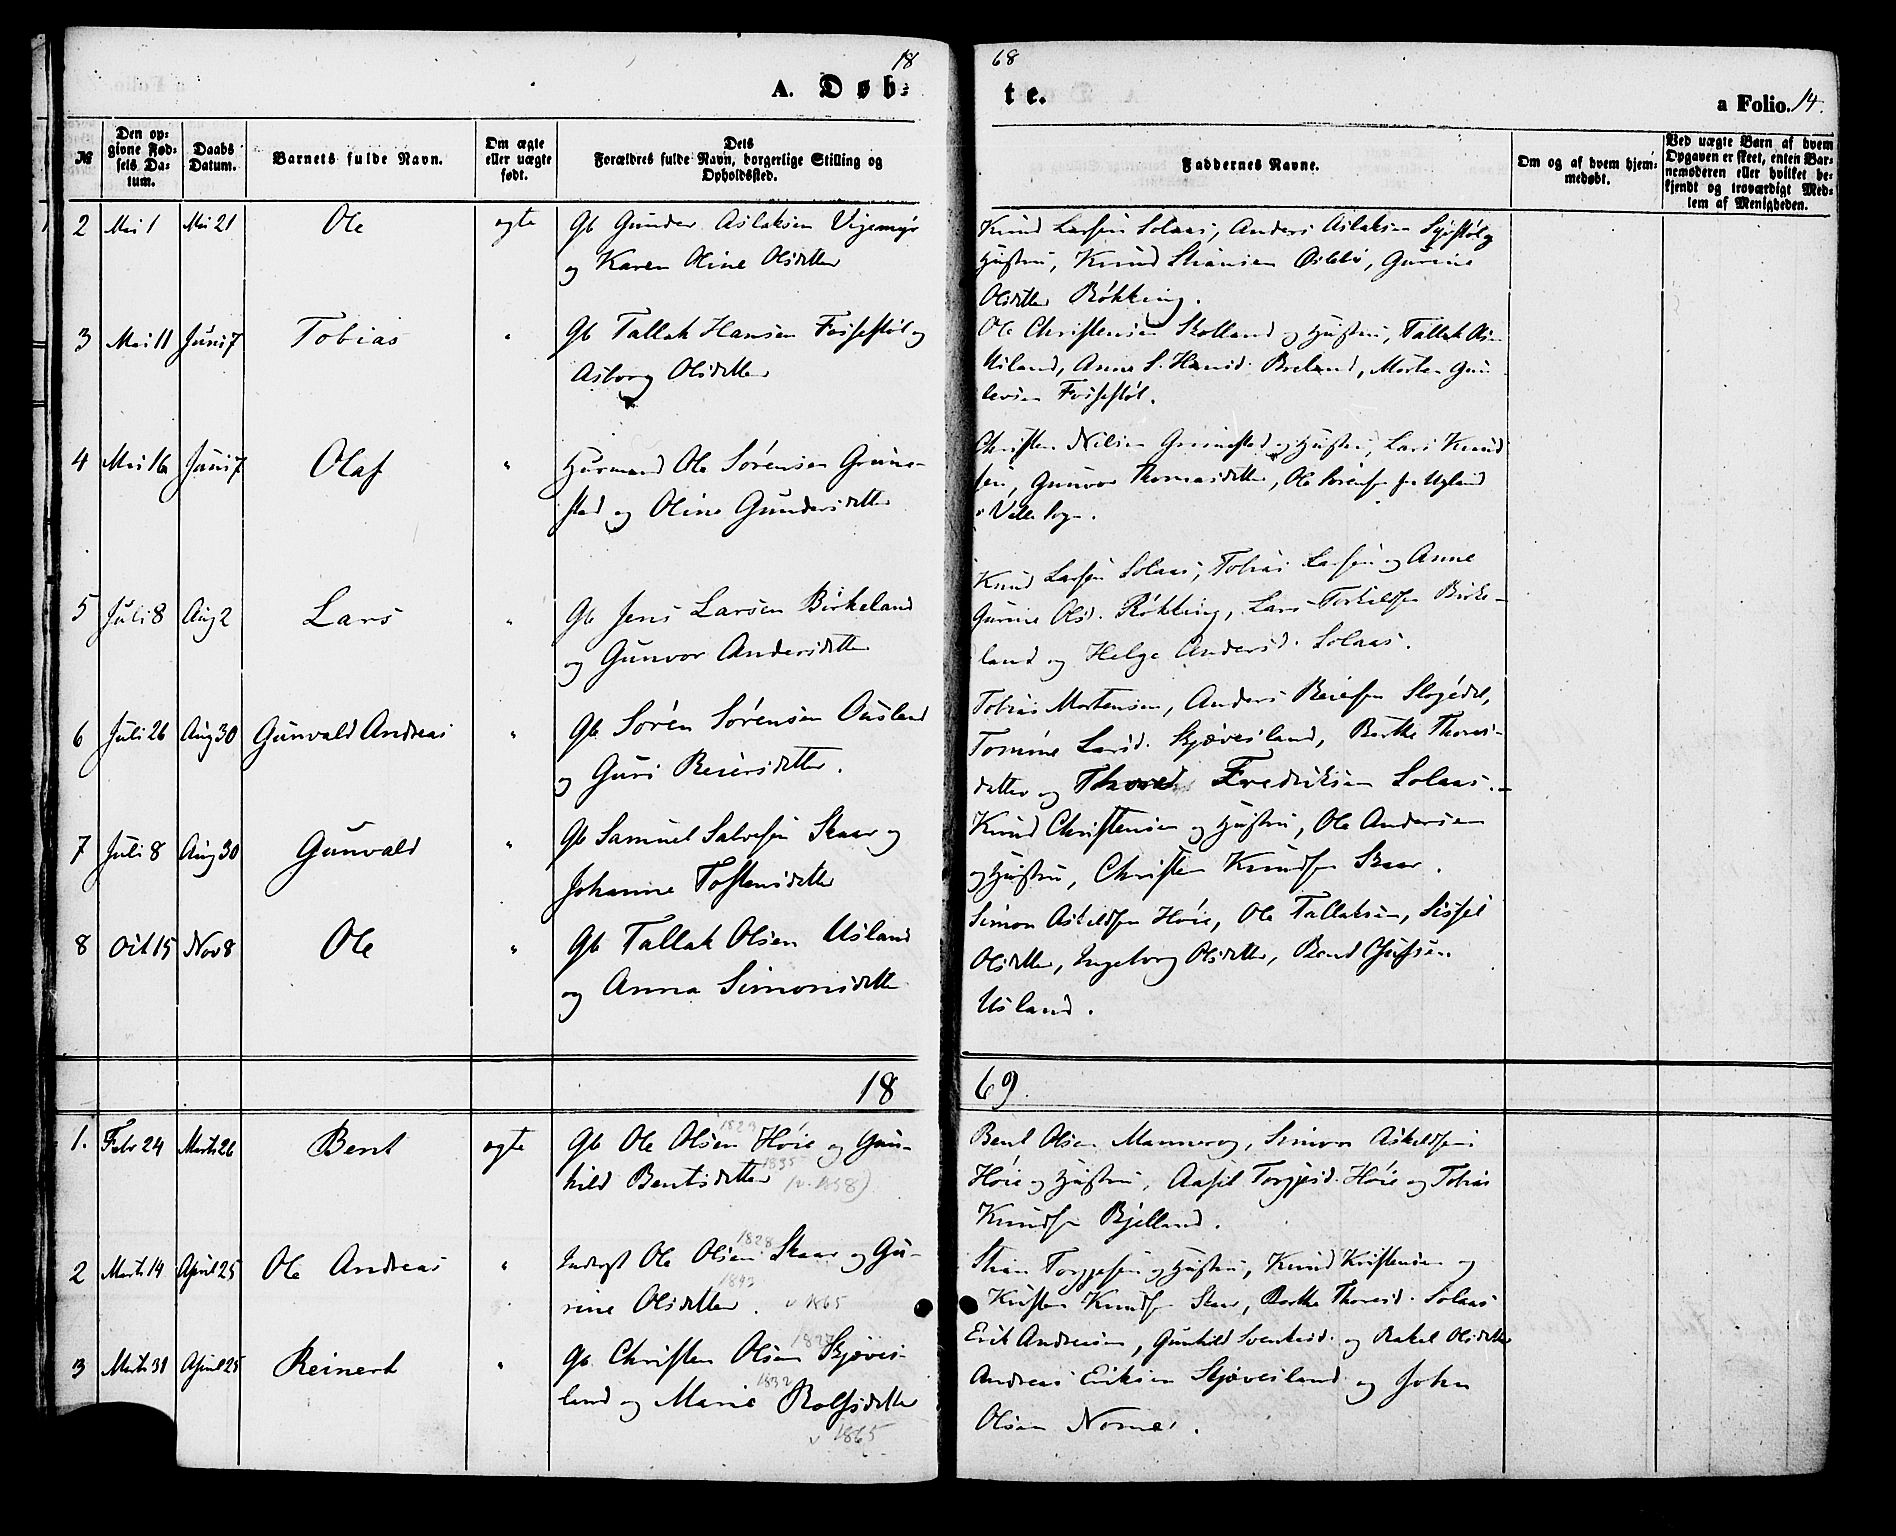 18 68
A. Døb: te.
a Folio. 14.
№
Den op-
givne Fød-
sels Da-
tum.
Daabs
Datum.
Barnets fulde Navn.
Om ægte
eller uægte
født.
Dets
Forældres fulde Navn, borgerlige Stilling og
Opholdssted.
Faddernes Navne.
Om og af hvem hjem-
medøbt.
Ved uægte Børn af hvem
Opgaven er skeet, enten Bar-
nemoderen eller hvilket be-
kjendt og troværdigt Med-
lem af Menigheden.
2 Mai 1 Mai 21 Ole ægte Gb Gunder Aslaksen Vigemyr
og Karen Oline Olsdatter
Knud Larsen Solaas, Anders Aslaksen
Hustru, Knud Stiansen Øslebø, Gurine
Olsdatter Røkking.
3 Mai 11 Juni 7 Tobias " Gb Tallak Hansen Fossestøl og
Asborg Olsdatter
Ole Christensen Skolland og Hustru, Tallak Olsen
Usland, Anne S. Hansd. Breland, Morten Gun-
levsen Fossestøl.
4 Mai 16 Juni 7 Olaf " Husmand Ole Sørensen Grime-
stad og Oline Gundersdatter
Christen Nilsen Grimestad og Hustru, Lars Knud-
sen, Gunvor Thomasdatter, Ole Sørensen fra Usland
i Valle Sogn.
5 Juli 8 Aug 2 Lars " Gb Jens Larsen Birkeland
og Gunvor Andersdatter
Knud Larsen Solaas, Tobias Larsen og Anne
Gurine Olsd. Røkking, Lars Torkildsen Birke-
land og Helge Andersd. Solaas.
6 Juli 26 Aug 30 Gunvald Andreas " Gb Søren Sørensen Ousland
og Guri Reiersdatter.
Tobias Mortensen, Anders Reiersen Slogedal,
Tomine Larsd. Skjævesland, Berthe Thores-
datter og Thored Fredriksen Solaas.
7 Juli 8 Aug 30 Gunvald " Gb Samuel Salvesen Skaar og
Johanne Tostensdatter
Knud Christensen og Hustru, Ole Andersen
og Hustru, Christen Knudsen Skaar.
8 Oct 15 Nov 8 Ole " Gb Tallak Olsen Usland
og Anna Simonsdatter
Simon Askildsen Høie, Ole Tallaksen, Sissel
Olsdatter, Ingeborg Olsdatter, Bend
Usland.
18 69.
1. Febr 24 Marts 26 Bent ægte Gb Ole Olsen 1829 Høie og Gun-
hild Bentsdatter 1835 (v. 1858)
Bent Olsen Mannerag, Simon Askildsen
Høie og Hustru, Aasil Torgjusd. Høie og Tobias
Knudsen Bjelland.
2 Marts 14 April 25 Ole Andreas " Inderst Ole Olsen 1828 Skaar og Gu-
rine Olsdatter. 1843 v 1865
Stian Torgjusen og Hustru, Knud Kristensen og
Kristen Knudsen Skaar, Berthe Thoresd. Solaas
3 Marts 31 April 25 Reinert " Gb Christen Olsen Skjæves-
land og Marie 1832 Rolfsdatter
v 1865
Erik Andreasen, Gunhild Svenkesd. og Rakel Olsdatter
Andreas Eriksen Skjævesland og John
Olsen Nome.